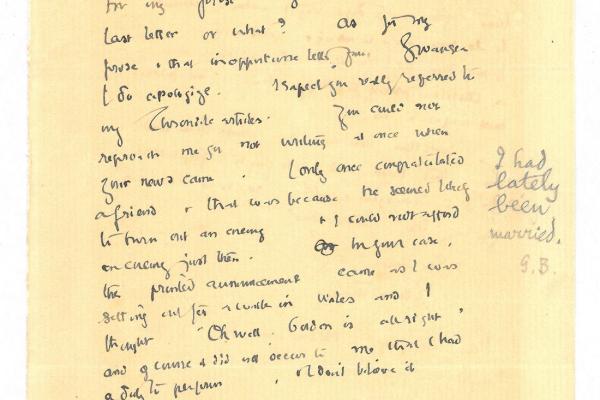 for my prose
last letter or what? As for my
prose & that inopportune letter from Swansea
I do apologize. I hoped you really referred to
my Chronicle articles. You could not
reproach me for not writing at once when
your news came. I only once congratulated
a friend & that was because he seemed likely
to turn out an enemy & I could not afford
an enemy just then. In your case,
the printed announcement came as I was
setting out for a walk in Wales and I
thought "Oh well. Gordon is all right"
and of course it did not occur to me that I had
a duty to perform. I don't believe it
I had
lately
been
married.
G.B.